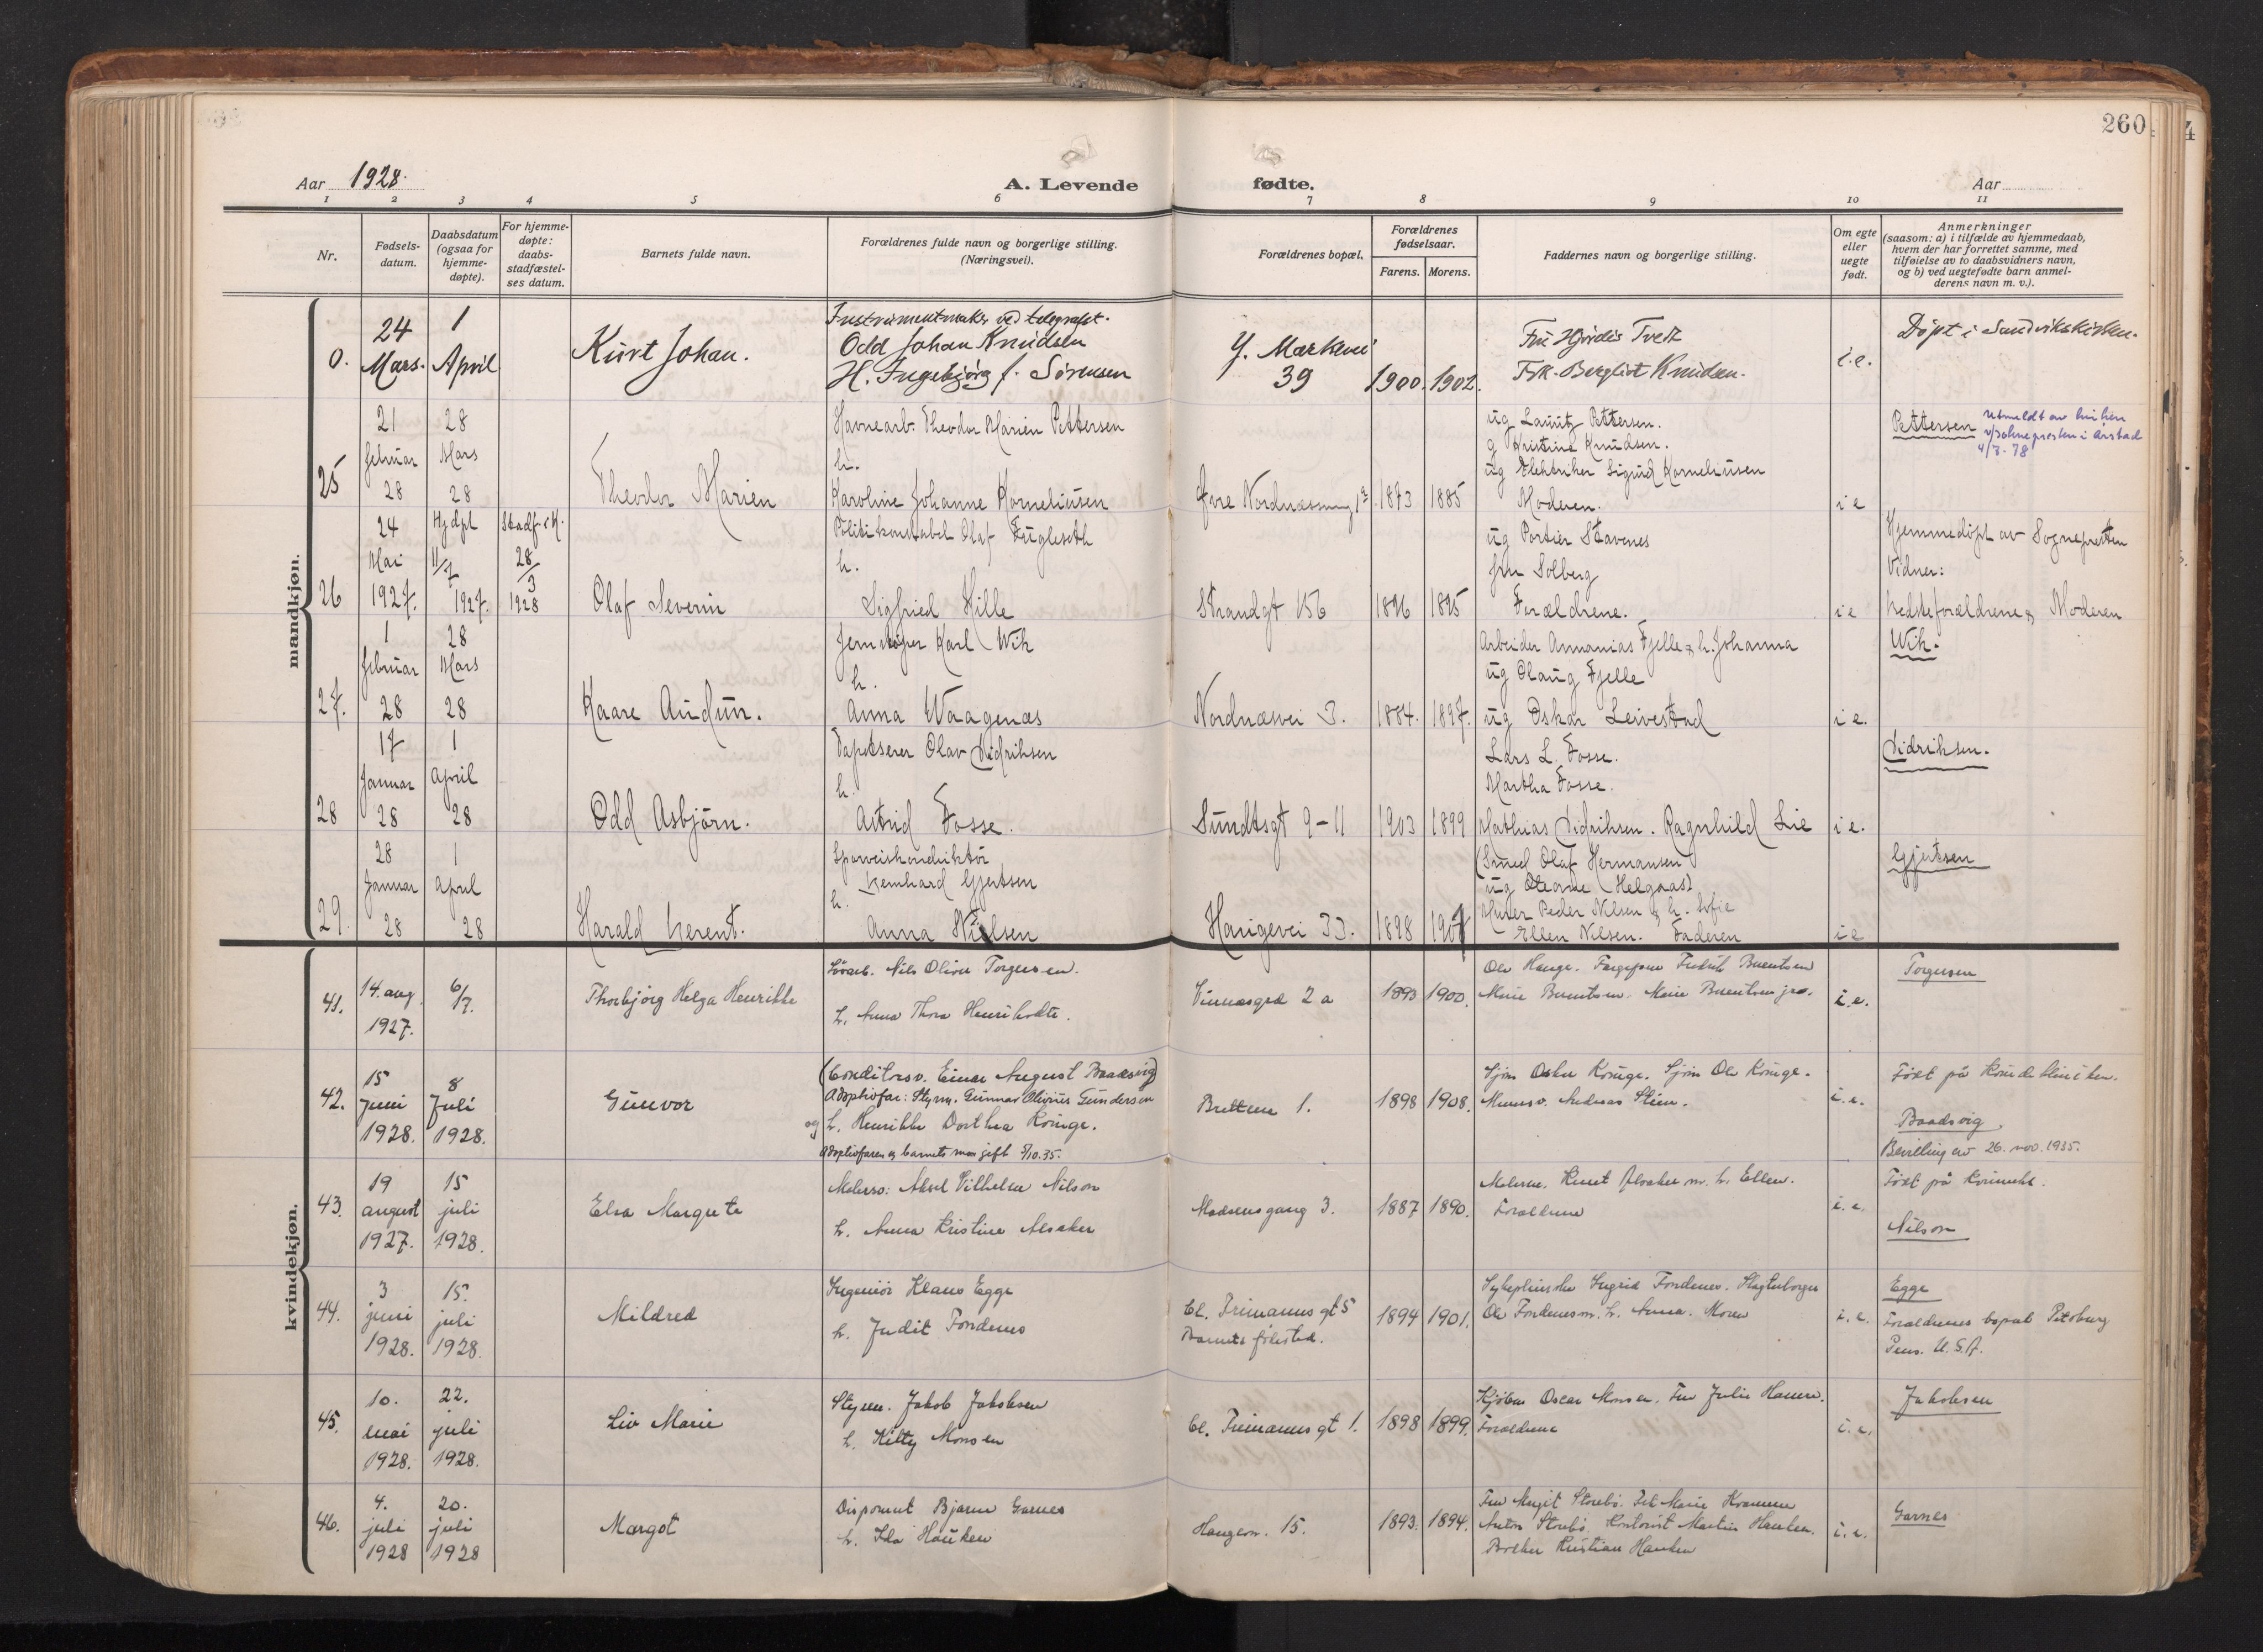 260
Aar 1928.
A. Levende fødte.
Aar
1 2 3 4 5 6 7 8 9 10 11
Nr.
Fødsels-
datum.
Daabsdatum
(ogsaa for
hjemme-
døpte).
For hjemme-
døpte:
daabs-
stadfæstel-
ses datum.
Barnets fulde navn.
Forældrenes fulde navn og borgerlige stilling.
(Næringsvei).
Forældrenes bopæl.
Forældrenes
fødselsaar.
Farens. Morens.
Faddernes navn og borgerlige stilling.
Om egte
eller
uegte
født.
Anmerkninger
(saasom: a) i tilfælde av hjemmedaab,
hvem der har forrettet samme, med
tilføielse av to daabsvidners navn,
og b) ved uegtefødte barn anmel-
derens navn m. v.).
mandkjøn.
0.
24
Mars.
1
April
Kurt Johan.
Instrumentmaker ved telegrafst.
Odd Johan Knudsen
H. Ingebjørg f. Sørensen
Y. Markevei
39
1900. 1902.
Fru Hjördis Tvedt
Frk. Bergliot Knudsen.
i.e.
Døpt i Sandvikskirken.
25
21
februar
28
28
Mars
28
Theodor Marien
Havnearb. Theodor Marien Pettersen
h.
Karoline Johanne Korneliusen
Øvre Nordnæssmug
1873 1885
ug Lauritz Pettersen.
g Kristine Knudsen.
ug Elektriker Sigurd Korneliusen
Moderen.
i e
Pettersen
Utmeldt av kirken
v/sokneprosten i Årstad
4/7-78
26
24
Mai
1927.
Hjdpt
11/7
1927.
Stadf. i K.
28
3
1928
Olaf Severin
Politikonstabel Olaf Fugleseth
h.
Sigfried Hille
Strandgt 156
1896 1895
ug Portier Stavenes
fru Solberg
Forældrene.
i e
Hjemmedøpt av Sognepresten
Vidner:
Bedsteforældrene & Moderen
27.
1
februar
28
28
Mars
28
Kaare Audun.
Jernstøper Karl Wik
h.
Anna Waagenæs
Nordnæsvei 3.
1884. 1897.
Arbeider Annanias Fjelle & h. Johanna
ug Olaug Fjelle
ug Oskar Leivestad
i e.
Wik.
28
17
Januar
28
1
April
28
Odd Asbjørn.
Tapetserer Olav Didriksen
h.
Astrid Fosse.
Sundtsgt 9-11
1903 1899
Lars L. Fosse.
Martha Fosse.
Mathias Didriksen. Ragnhild Lie
i e.
Didriksen.
29.
28
Januar
28
1
April
28
Harald Berent.
Sporveiskonduktør
Bernhard Gjertsen
h.
Anna Nielsen
Haugevei 33.
1898
Smed Olaf Hermansen
ug
Murer Peder Nilsen & h. Sofie
Ellen Nilsen. Faderen
i e
Gjertsen
kvindekjøn.
41.
14. aug.
1927.
6/7.
Thorbjörg Helga Henrikke
Nils Oliver Torgersen.
h. Anna Thora
2 a
1893 1900.
Ole Hauge. Fredrik Berentsen
Marie Berentsen. Marie Berentsen
i.e.
Torgersen
42.
15
juni
1928.
8
Juli
1928.
Gunvor
(Conditorsv. Einar August Baadsvig)
Adoptivfar: Styrm. Gunnar Olijius Gundersen
og h. Henrikke Dorthea Kringe.
Adoptivfaren og barnets mor gift 5/10.35.
1.
1898 1908.
Sjøm Oskar Kringe. Sjøm Ole Kringe.
Andreas
i.e.
Født på Kvindeklinikken.
Baadsvig.
Bevilling av 26. nov. 1935.
43.
19
august
1927.
15
juli
1928.
Elsa Margrete
Malersv: Aksel Vilhelm Nilson
h. Anna Kristine Alsaker
Madsensgang 3.
1887 1890.
Malerm. Knut Alsaker m. h. Ellen.
Forældrene
i.e.
Født på Kvinnekl.
Nilson
44.
3
juni
1928.
15.
juli
1928.
Mildred
Ingeniör Klaus Egge
h. Judit Fondenes
Cl. Frimannsgt 5
Barnets fødested.
1894 1901.
Sykepleierske Ingrid Fondenes.
Ole Fondenes m. h. Anna. Moren
i.e.
Egge
Forældrenes bopæl Pitsburg
Pens. U.S.A.
45.
10.
mai
1928.
22.
juli
1928.
Liv Marie
Styrm. Jakob Jakobsen
h. Kitty Monsen
Cl. Frimannsgt 1.
1898 1899.
Kjøbm Oscar Monsen. Fru Julie
Forældrene
i.e.
Jakobsen
46.
4.
juli
1928
20.
juli
1928
Margot
Disponent Bjarne Garnes
h. Ida Hauken
Haugevn. 15.
1893. 1894.
Fru Margit Storebö. Frk Marie
Anton Storebö. Kontorist Martin Hauken.
Kristian Hauken
i.e.
Garnes